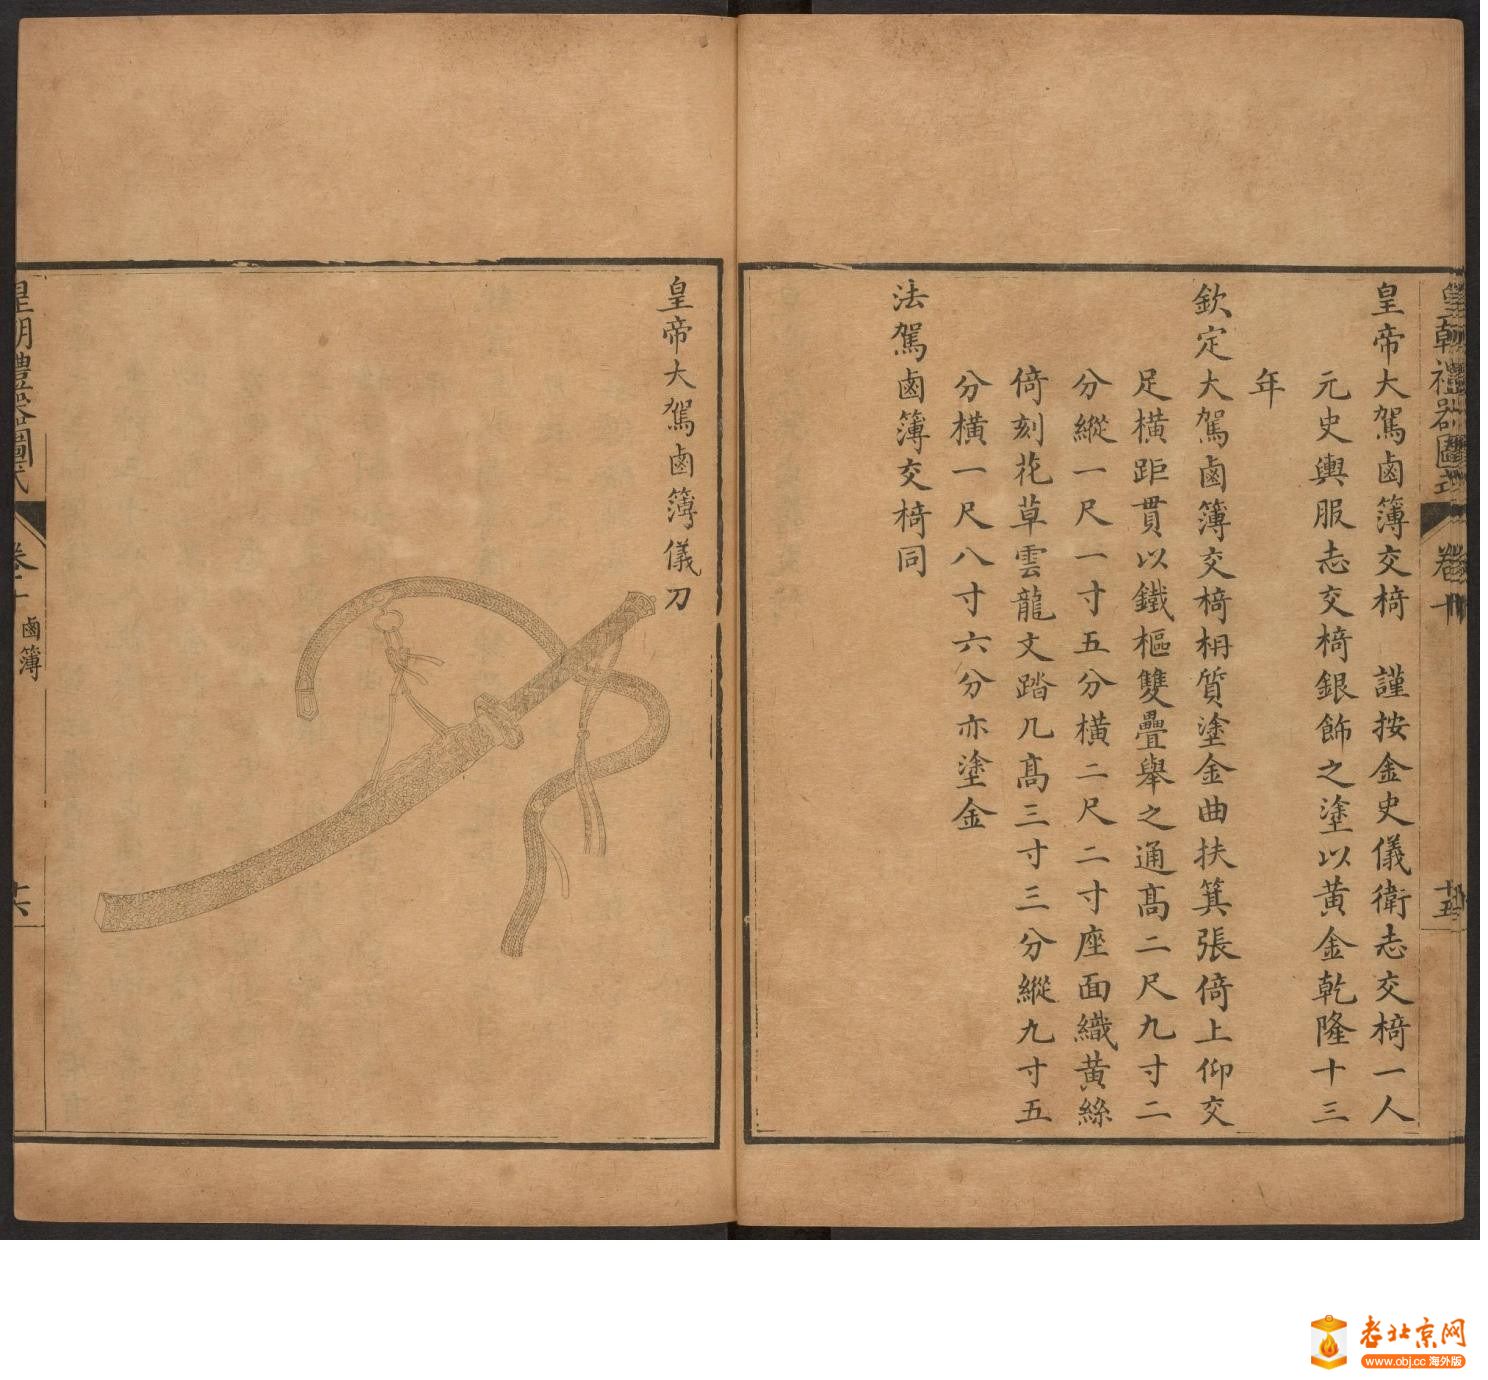 皇朝禮器圖式 卷十 十五
皇帝大駕鹵簿交椅 謹按金史儀衛志交椅一人
元史輿服志交椅銀飾之塗以黃金乾隆十三
年
欽定大駕鹵簿交椅枬質塗金曲扶箕張倚上仰交
足橫距貫以鐵樞雙疊舉之通高二尺九寸二
分縱一尺一寸五分橫二尺二寸座面織黃絲
倚刻花草雲龍文踏几高三寸三分縱九寸五
分橫一尺八寸六分亦塗金
法駕鹵簿交椅同
皇帝大駕鹵簿儀刀
皇朝禮器圖式 卷十 鹵簿 十六
老北京网
www.obj.cc 海外版